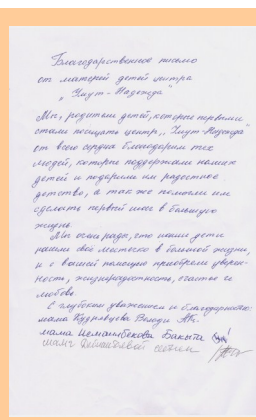 Благодарственное письмо
от матерей детей центра
„Умут-Надежда"
Мы, родители детей, которые первыми
стали посещать центр „Умут-Надежда"
от всего сердца благодарим тех
людей, которые поддержали наших
детей и подарили им радостное
детство, а так же помогли им
сделать первый шаг в большую
жизнь.
Мы очень рады, что наши дети
нашли своё местечко в большой жизни,
и с вашей помощью приобрели уверен-
ность, жизнерадостность, счастье и
любовь.
С глубоким уважением и благодарностью:
мама Кудрявцева Володи
мама Исманбекова Бакыта
мама